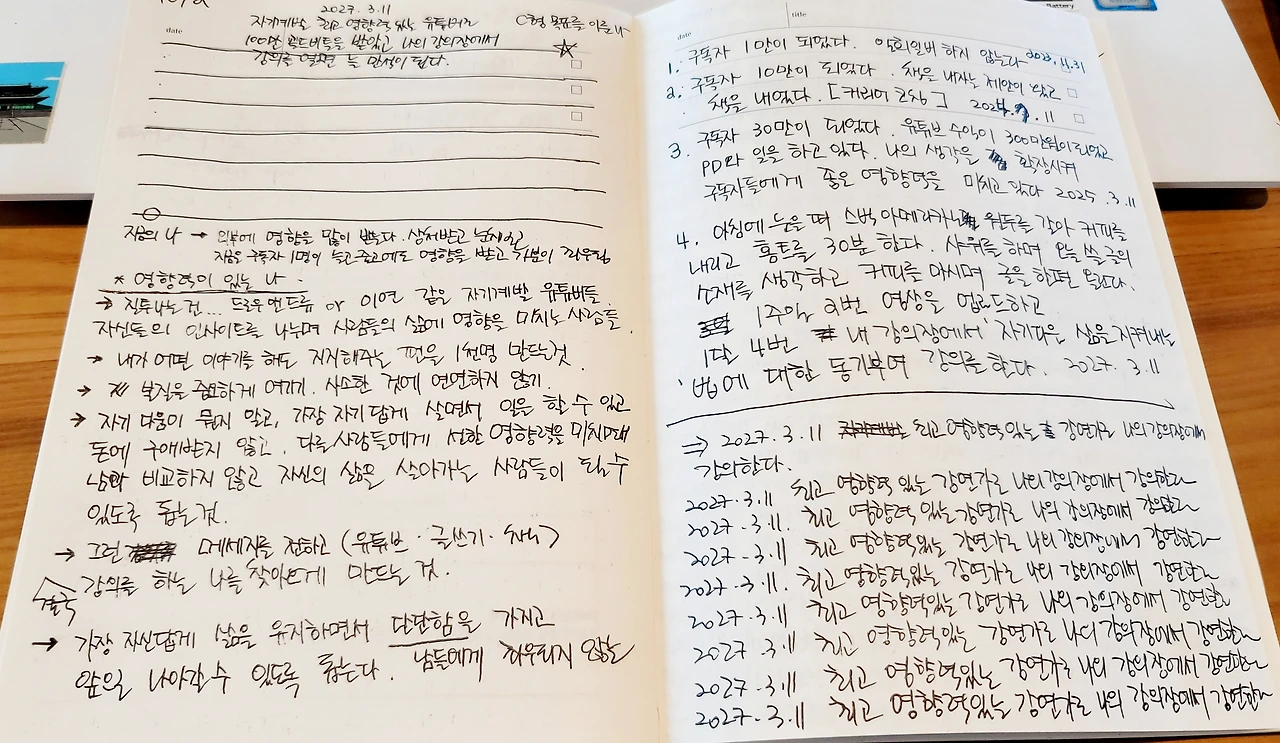 2027. 3. 11
자기계발 최고 영향력있는 유튜버로
100만 골드버튼을 받았고 나의 강의장에서
강의를 열면 늘 만석이 된다.
목표를 이룬 나
date
지금의 나 → 외부에 영향을 많이 받는다. 상처받고
지금 구독자 1명이 늘고 줄고에도 영향을 받고 기분이 좌우됨
* 영향력이 있는 나.
→ 질투나는 건... 드로우앤드류 or 이연 같은 자기계발 유튜버들.
자신들의 인사이트를 나누며 사람들의 삶에 영향을 미치는 사람들.
→ 내가 어떤 이야기를 해도 지지해주는 팬을 1천명 만드는 것.
→ 본질을 중요하게 여기기. 사소한 것에 연연하지 않기.
→ 자기 다움이 묻지 말고, 가장 자기답게 살면서 일은 할 수 있고
돈에 구애받지 않고, 다른 사람들에게 선한 영향력을 미치며
남과 비교하지 않고 자신의 삶을 살아가는 사람들이 될 수
있도록 돕는 것.
→ 그런 메세지를 전하고 (유튜브 · 글쓰기 · )
강의를 하는 나를 찾아오게 만드는 것.
결국
→ 가장 자신답게 삶을 유지하면서 단단함을 가지고
남들에게 좌우되지 않는
앞으로 나아갈 수 있도록 돕는다.
title
date
1. 구독자 1만이 되었다. 일희일비 하지 않는다
2. 구독자 10만이 되었다. 책을 내자는 제안이 왔고
책을 내었다. [커리어 코칭] 2024. 9. 11
3. 구독자 30만이 되었다. 유튜브 수익이 300만원이 되었고
PD와 일을 하고 있다. 나의 생각을 확장시켜
구독자들에게 좋은 영향력을 미치고 있다 2025. 3. 11
4. 아침에 눈을 떠 스벅 아메리카노 원두를 갈아 커피를
내리고 홈트를 30분 한다. 샤워를 하며 오늘 쓸 글의
소재를 생각하고 커피를 마시며 글을 한편 올린다.
1주일 2번 영상을 업로드하고
1달 4번 내 강의장에서 자기다운 삶을 지켜내는
법에 대한 동기부여 강의를 한다. 2027. 3. 11
⇒ 2027. 3. 11 최고 영향력 있는 강연가로 나의 강의장에서
강의한다.
2027. 3. 11 최고 영향력 있는 강연가로 나의 강의장에서 강의한다
2027. 3. 11. 최고 영향력 있는 강연가로 나의 강의장에서 강의한다
2027. 3. 11 최고 영향력있는 강연가로 나의 강의장에서 강연한다
2027. 3. 11. 최고 영향력있는 강연가로 나의 강의장에서 강연한다
2027. 3. 11 최고 영향력있는 강연가로 나의 강의장에서 강연한다
2027. 3. 11 최고 영향력있는 강연가로 나의 강의장에서 강연한다
2027. 3. 11 최고 영향력있는 강연가로 나의 강의장에서 강연한다
2027. 3. 11 최고 영향력있는 강연가로 나의 강의장에서 강연한다